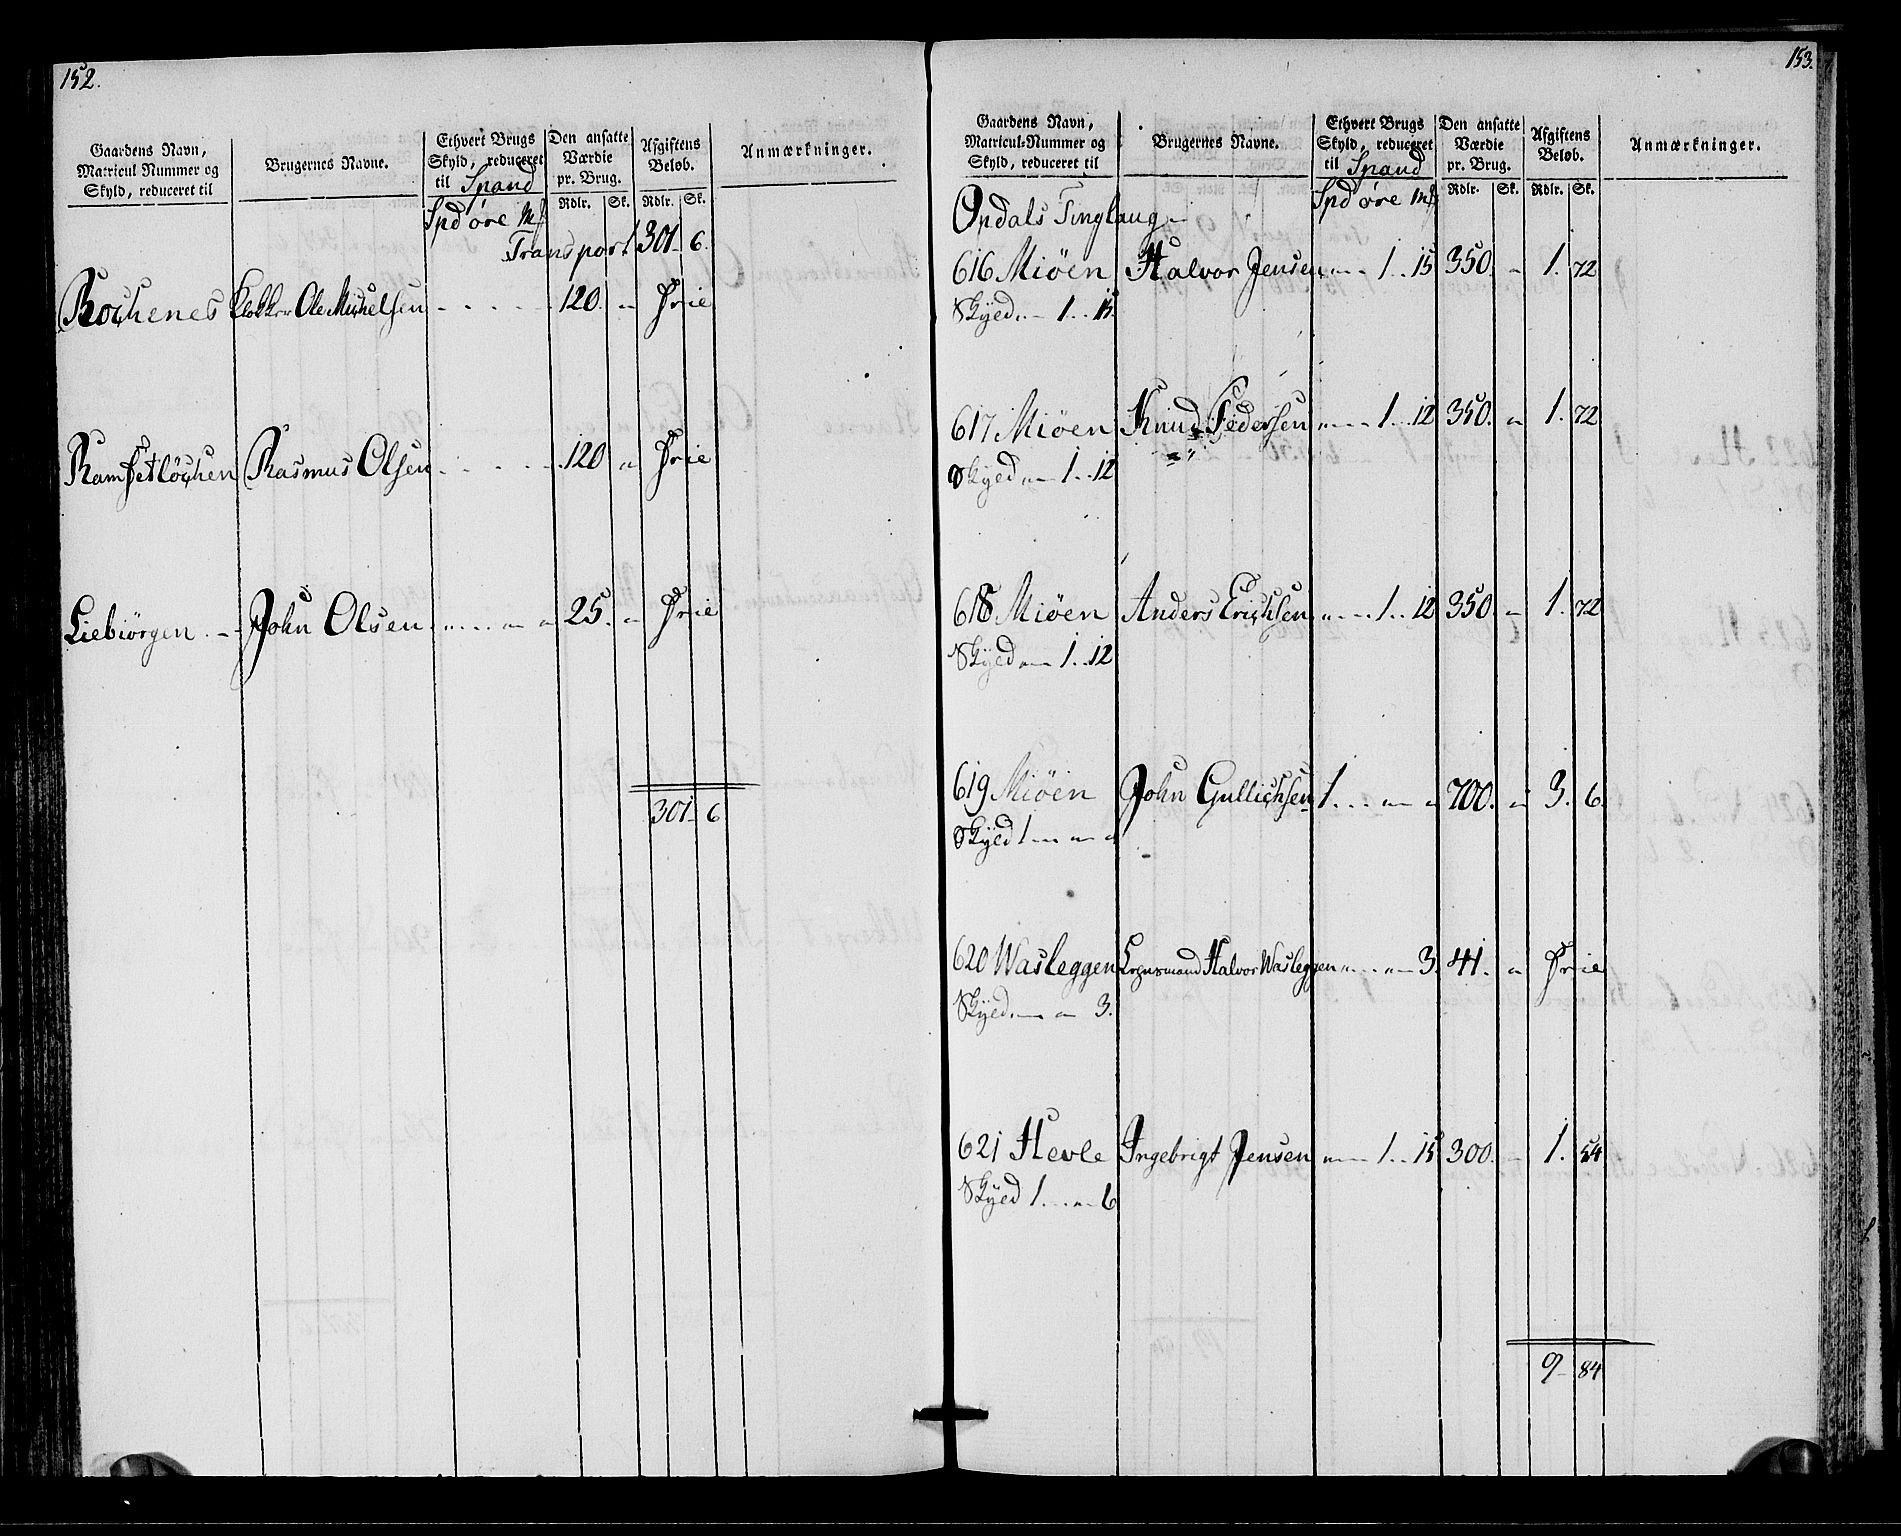 152.
Gaardens Navn,
Matricul Nummer og
Skyld, reduceret til
Brugernes Navne.
Ethvert Brugs
Skyld, reduceret
til Spand
Den ansatte
Værdie
pr. Brug.
Afgiftens
Beløb.
Anmærkninger.
Spd øre Mk
Rdlr. Sk. Rdlr. Sk.
Transport 301 6.
Klokker Ole Michelsen 120. " Frie
Ramsetløchen Rasmus Olsen 120 " Frie
Liebiørgen John Olsen 25. " Frie
301 6
153.
Gaardens Navn,
Matricul-Nummer og
Skyld, reduceret til
Brugernes Navne.
Ethvert Brugs
Skyld, reduceret
til Spand
Den ansatte
Værdie
pr. Brug.
Afgiftens
Beløb.
Anmærkninger.
Spd øre Mk
Rdlr. Sk. Rdlr. Sk.
Opdals Tinglaug
616 Miøen Halvor Jensen " 1 .. 15 350. " 1. 72
Skyld " 1 .. 15.
617 Miøen Knud Pedersen " 1 .. 12 350. " 1. 72
Skyld " 1 .. 12
618 Miøen Anders Erichsen " 1 .. 12 350 " 1. 72
Skyld " 1 .. 12
619 Miøen John Gullichsen 1 . " " 700. " 3. 6.
Skyld 1 " "
620 Wasleggen Lensmand Halvor Wasleggen " " 3. 41. " Frie
Skyld " " 3.
621 Hevle Ingebrigt Jensen " 1 .. 15 300. " 1. 54
Skyld 1 . " 6
9 84